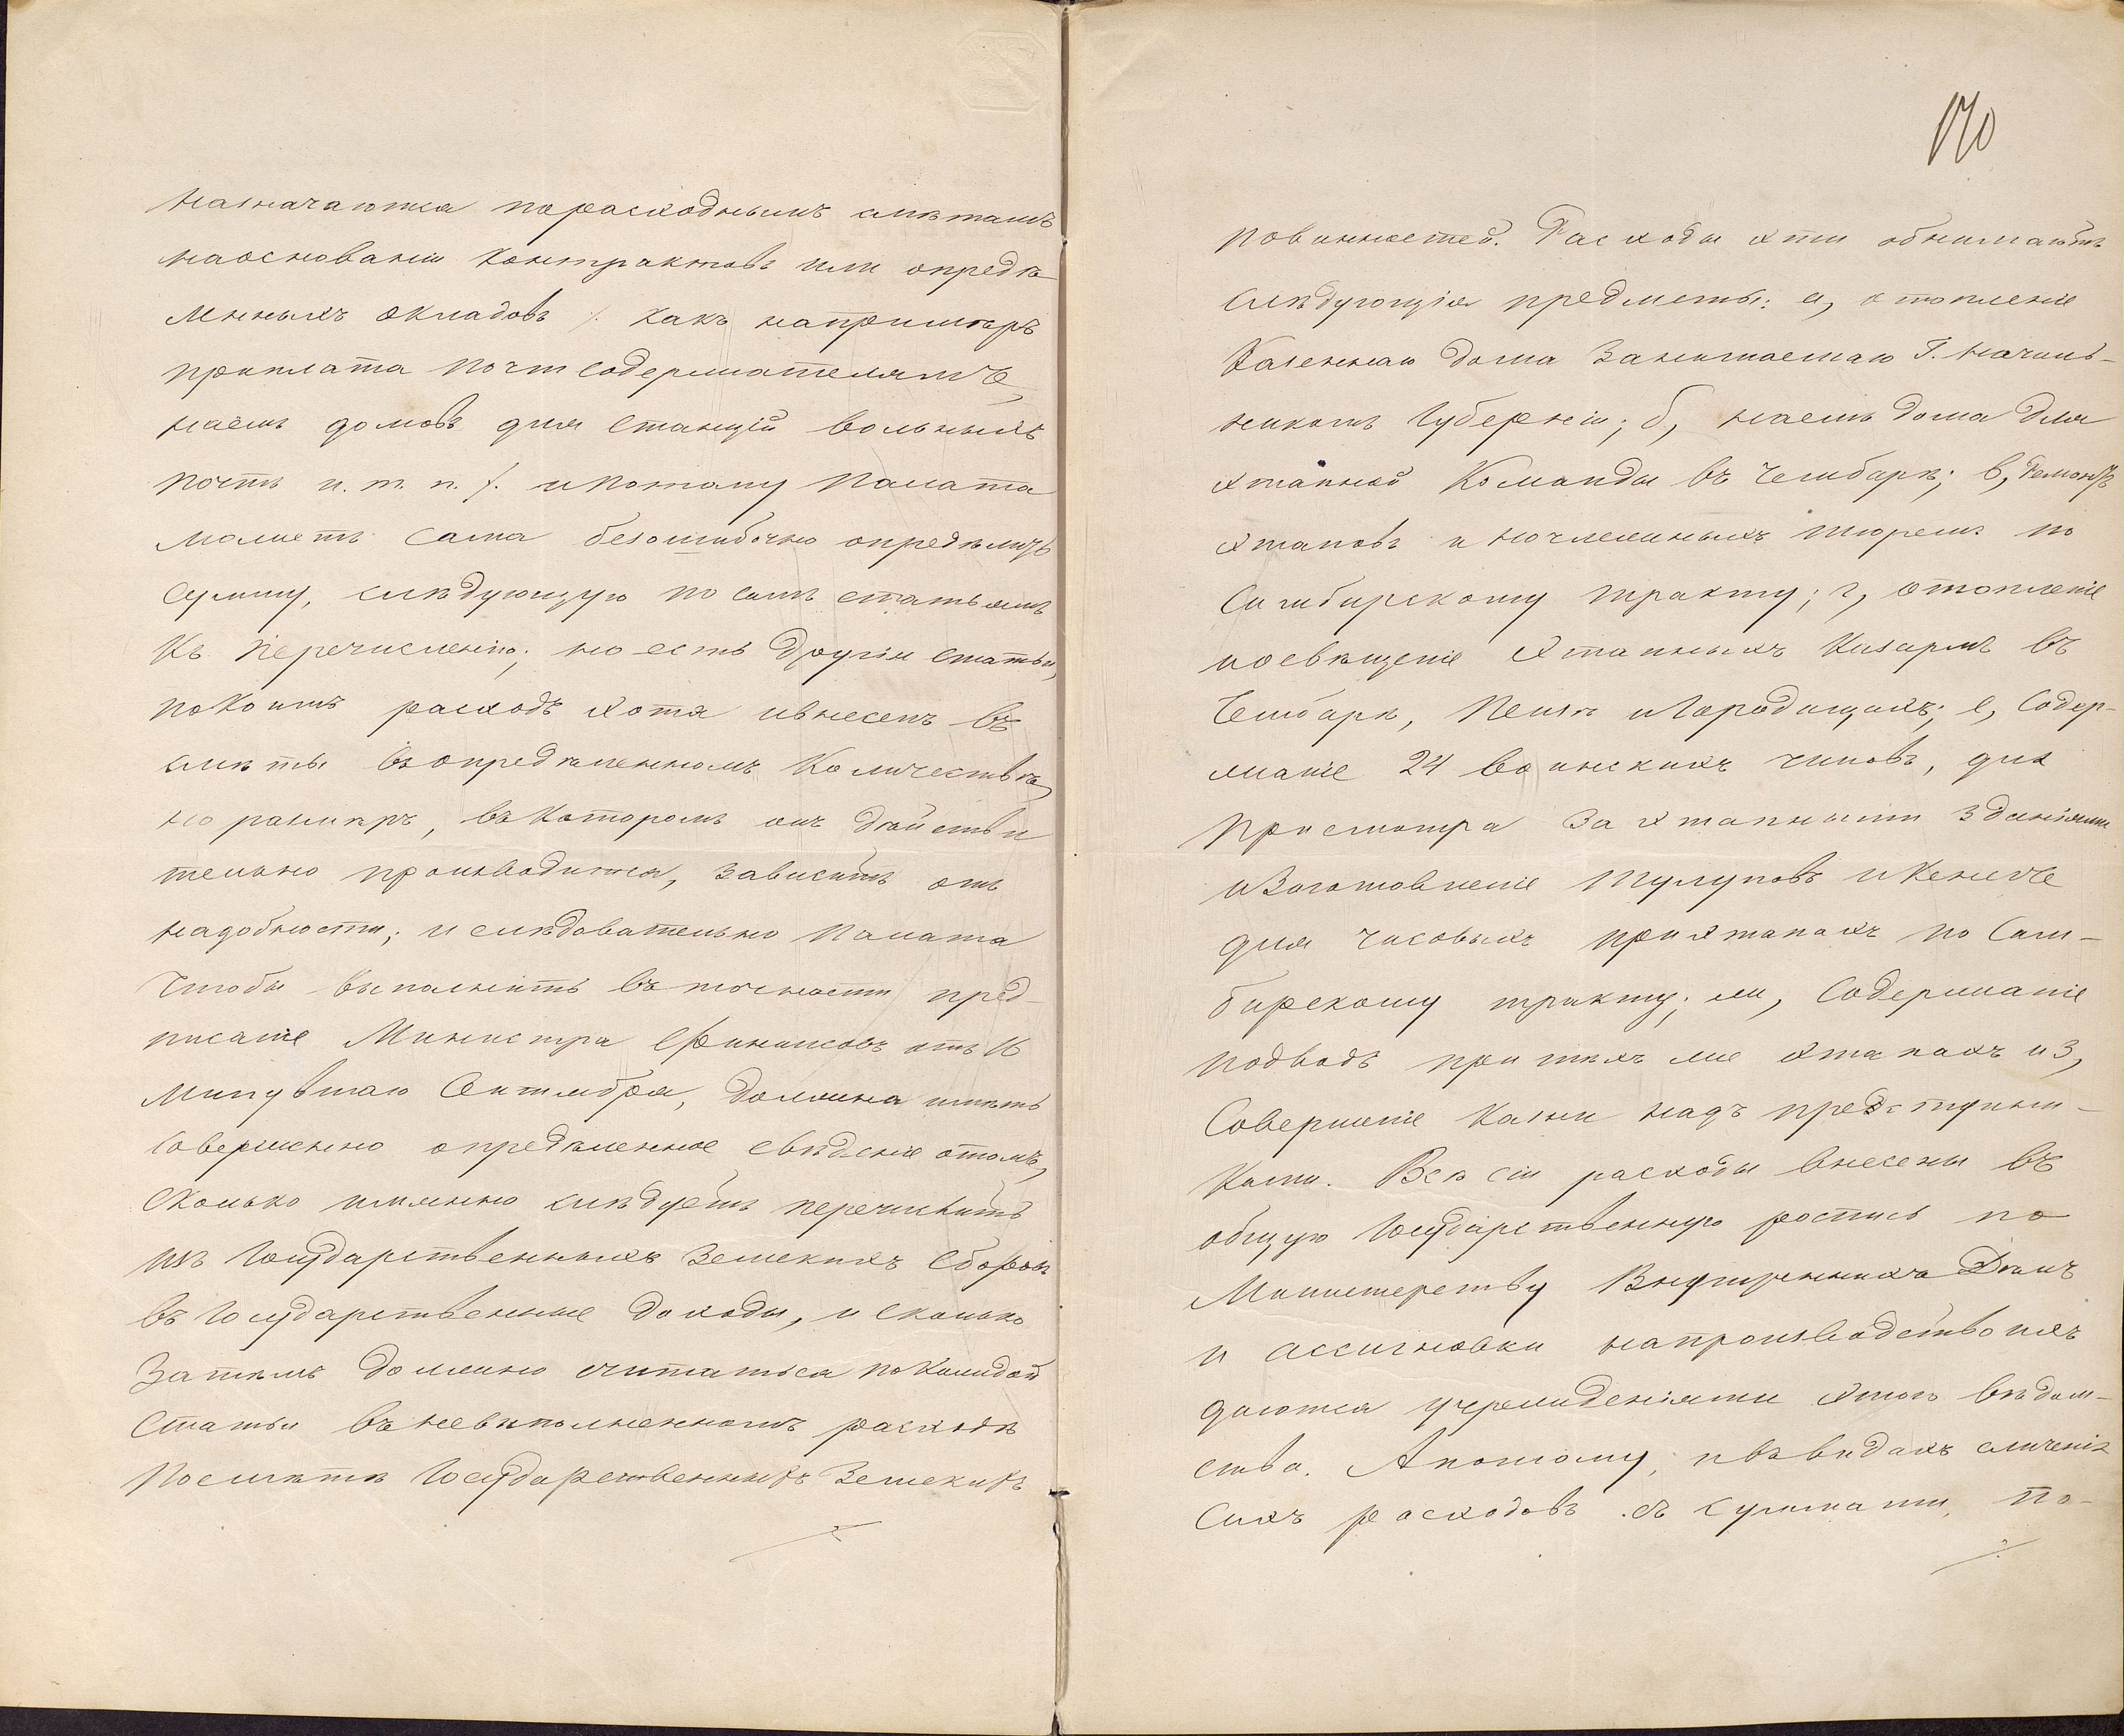 назначаются по расходнымъ смѣтамъ
на основаніи контрактовъ или опредѣ
ленныхъ окладовъ /. какъ напримѣръ
приплата почтсодержателямъ,
наёмъ домовъ для станцій вольныхъ
почтъ и. т. п. /. и потому Палата
можетъ сама безошибочно опредѣлить
сумму, слѣдующую по симъ статьямъ
къ перечисленію; но есть другія статьи,
по коимъ расходъ хотя и внесенъ въ
смѣты въ опредѣленномъ количествѣ,
но размѣръ, въ которомъ онъ дѣйстви
тельно производится, зависитъ отъ
надобности; и слѣдовательно Палата
чтобы выполнить въ точности пред-
писаніе Министра Финансовъ отъ 16
минувшаго Сентября, должна имѣть
совершенно опредѣленное свѣденіе о томъ,
сколько именно слѣдуетъ перечислить
изъ Государственныхъ Земскихъ сборовъ
въ Государственные доходы, и сколько
затѣмъ должно считаться по каждой
статьи въ невыполненномъ расходѣ
по смѣтѣ Государственныхъ Земскихъ
170
повинностей. Расходы эти обнимаютъ
слѣдующія предметы: а, отопленіе
Казеннаго дома занимаемаго Г. Началь-
никомъ Губерніи; б, наемъ дома для
этапной Команды въ Чембарѣ; в, ремонтъ
этаповъ и ночлежныхъ тюремъ по
Симбирскому тракту; г, отопленіе
и освѣщеніе этапныхъ казармъ въ
Чембарѣ, Пензѣ и Городищахъ; е, содер-
жаніе 24 воинскихъ чиновъ, для
присмотра за этапными зданіями
и заготовленіе тулуповъ и кенегъ
для часовыхъ при этапахъ по Сим-
бирскому тракту; ж, содержаніе
подводъ при тѣхъ же этапахъ и з,
совершеніе казни надъ преступни-
ками. Всѣ сіи расходы внесены въ
общую Государственную роспись по
Министерству Внутреннихъ Дѣлъ
и ассигновки на производство ихъ
даются учрежденіями этого вѣдом-
ства. А потому, и въ видахъ сличенія
сихъ расходовъ съ суммами, по-